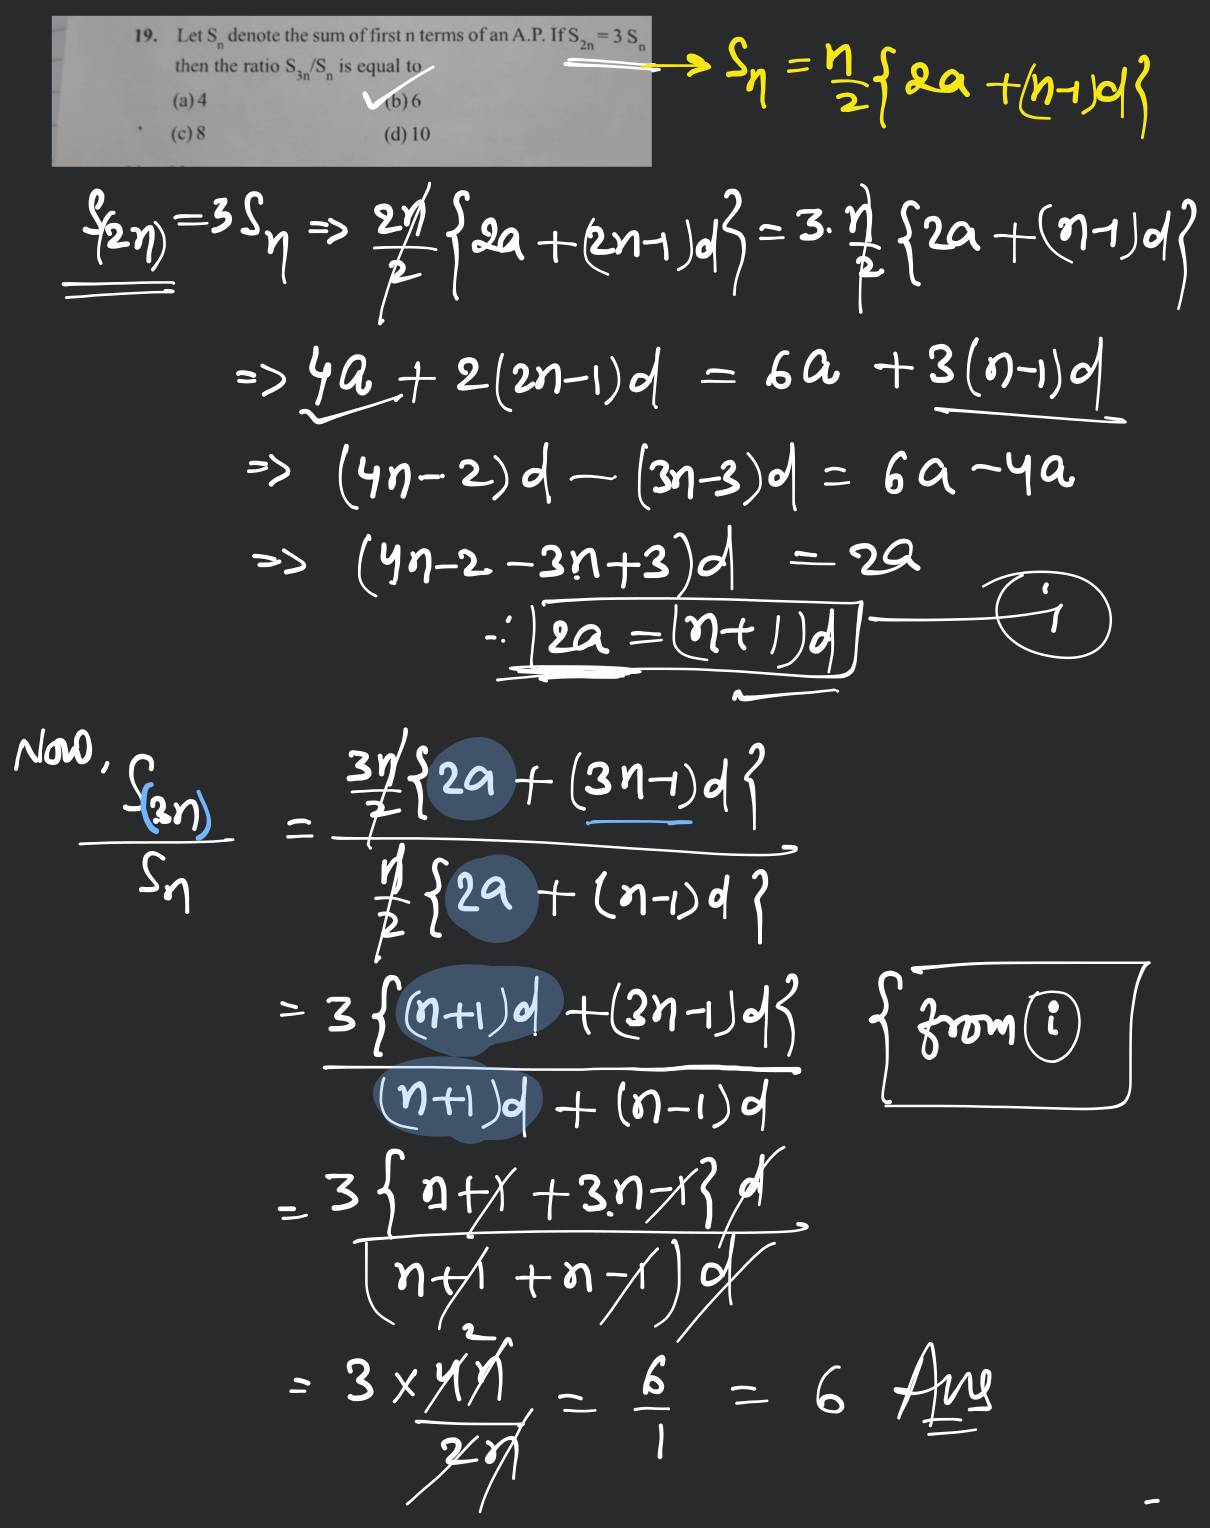 19. Let Sn denote the sum of first n terms of an A.P. If S2n = 3 Sn
then the ratio S3n/Sn is equal to
(a) 4 (b) 6
(c) 8 (d) 10
→ Sn = n/2 {2a + (n-1)d}
S(2n) = 3Sn => 2n/2 {2a + (2n-1)d} = 3. n/2 {2a + (n-1)d}
=> 4a + 2(2n-1)d = 6a + 3(n-1)d
=> (4n-2)d - (3n-3)d = 6a - 4a
=> (4n-2-3n+3)d = 2a
∴ 2a = (n+1)d i
Now, S(3n)/Sn = 3n/2 {2a + (3n-1)d} / n/2 {2a + (n-1)d}
= 3{(n+1)d + (3n-1)d} / (n+1)d + (n-1)d { from i
= 3{n+1 + 3n-1}d / (n+1 + n-1)d
= 3 × 4n 2 / 2n = 6/1 = 6 Ans